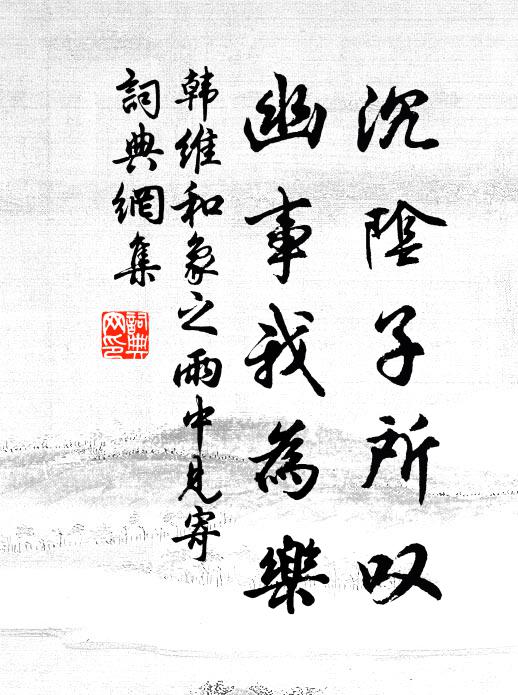 沉陰子所叹
幽事我為樂
韩维和象之雨中見寄
詞典網集
詞典
网印